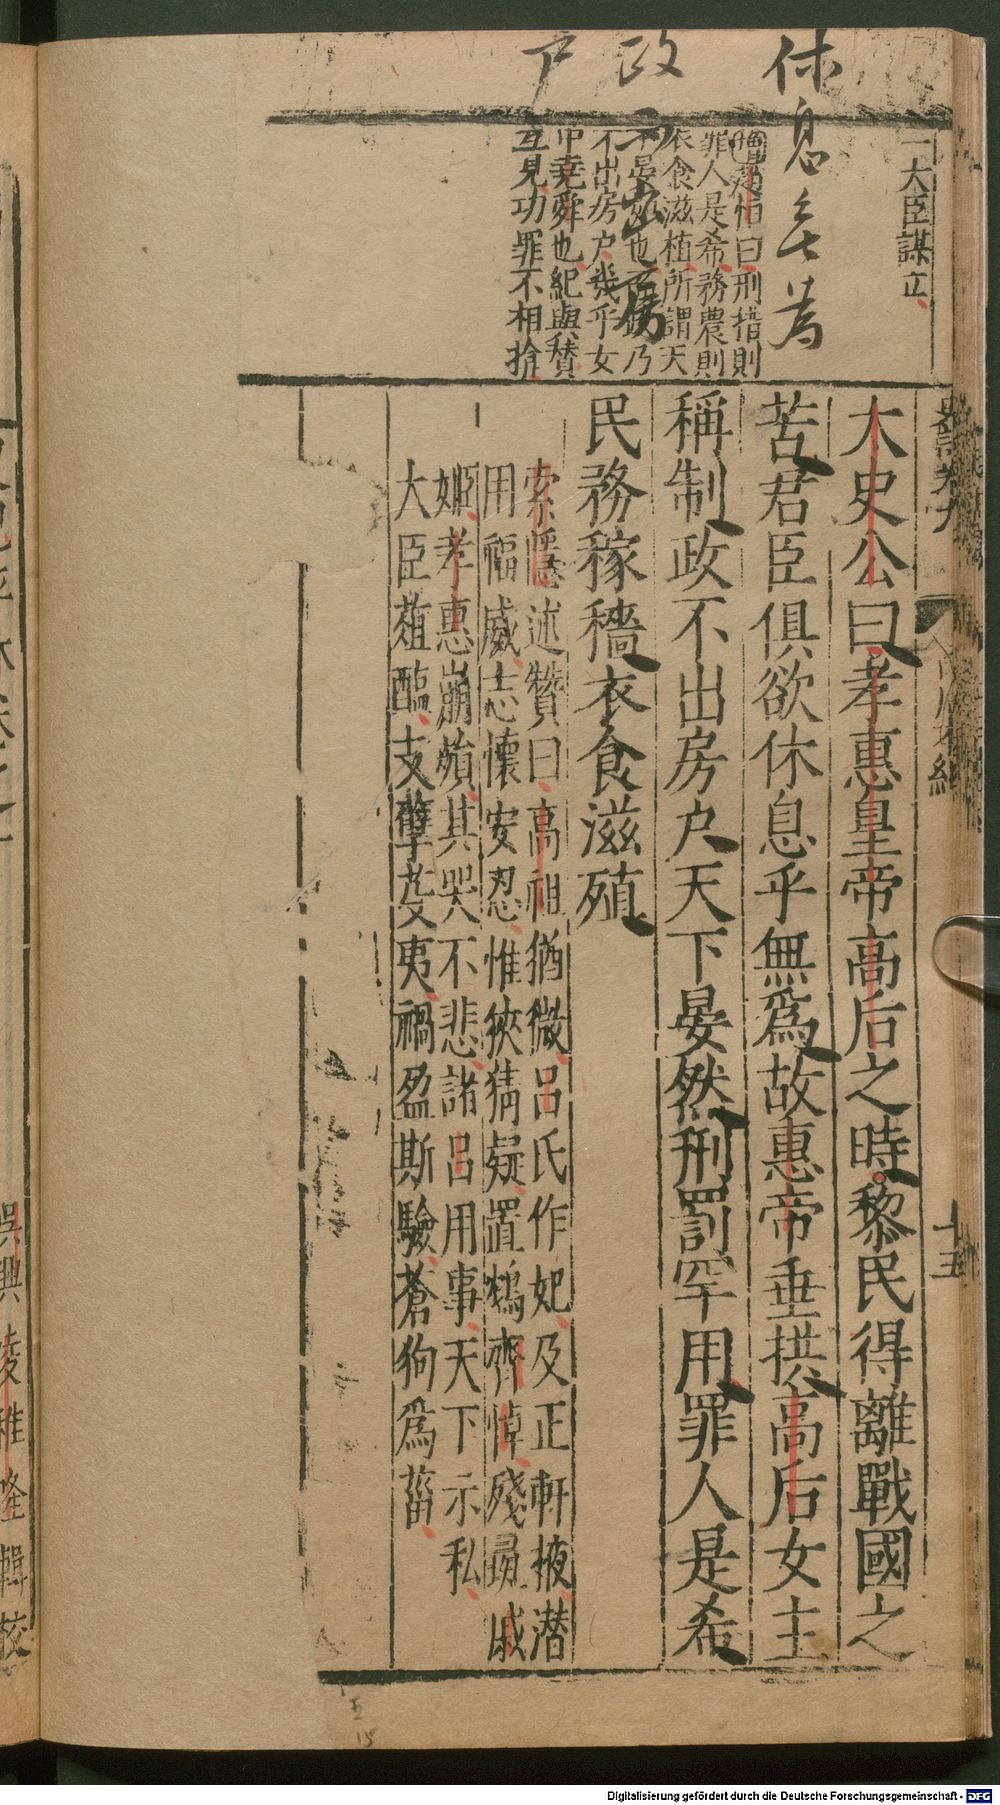 休息無為
政不出房
户
一大臣謀立
罪人是希務農則
衣食滋植所謂天
不出房户幾乎女
中堯舜也紀與贊
互見功罪不相掩
史記卷九
十五
太史公曰孝惠皇帝高后之時黎民得離戰國之
苦君臣俱欲休息乎無爲故惠帝垂拱高后女主
稱制政不出房户天下晏然刑罰罕用罪人是希
民務稼穡衣食滋殖
索隱述贊曰高祖猶微呂氏作妃及正軒掖潛
用福威志懷安忍惟挾猜疑置鴆齊悼殘彘戚
姬孝惠崩殞其哭不悲諸呂用事天下示私
大臣葅醢支孽芟夷禍盈斯驗蒼狗爲菑
吳興凌稚隆輯校
五
15
Digitalisierung gefördert durch die Deutsche Forschungsgemeinschaft - DFG